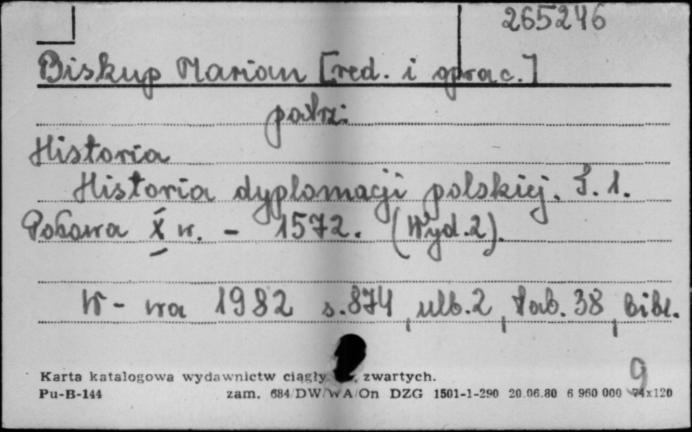 265246
Biskup Marian [red. i oprac.]
patrz:
Historia
Historia dyplomacji polskiej. T. 1.
Połowa X w. - 1572. (Wyd.2).
W-wa 1982 s.874, nlb.2, tab.38, bibl.
9
Karta katalogowa wydawnictw ciągły zwartych.
Pu-B-144 zam. 684/DW/WA/On DZG 1501-1-290 20.06.80 6 960 000 74x120